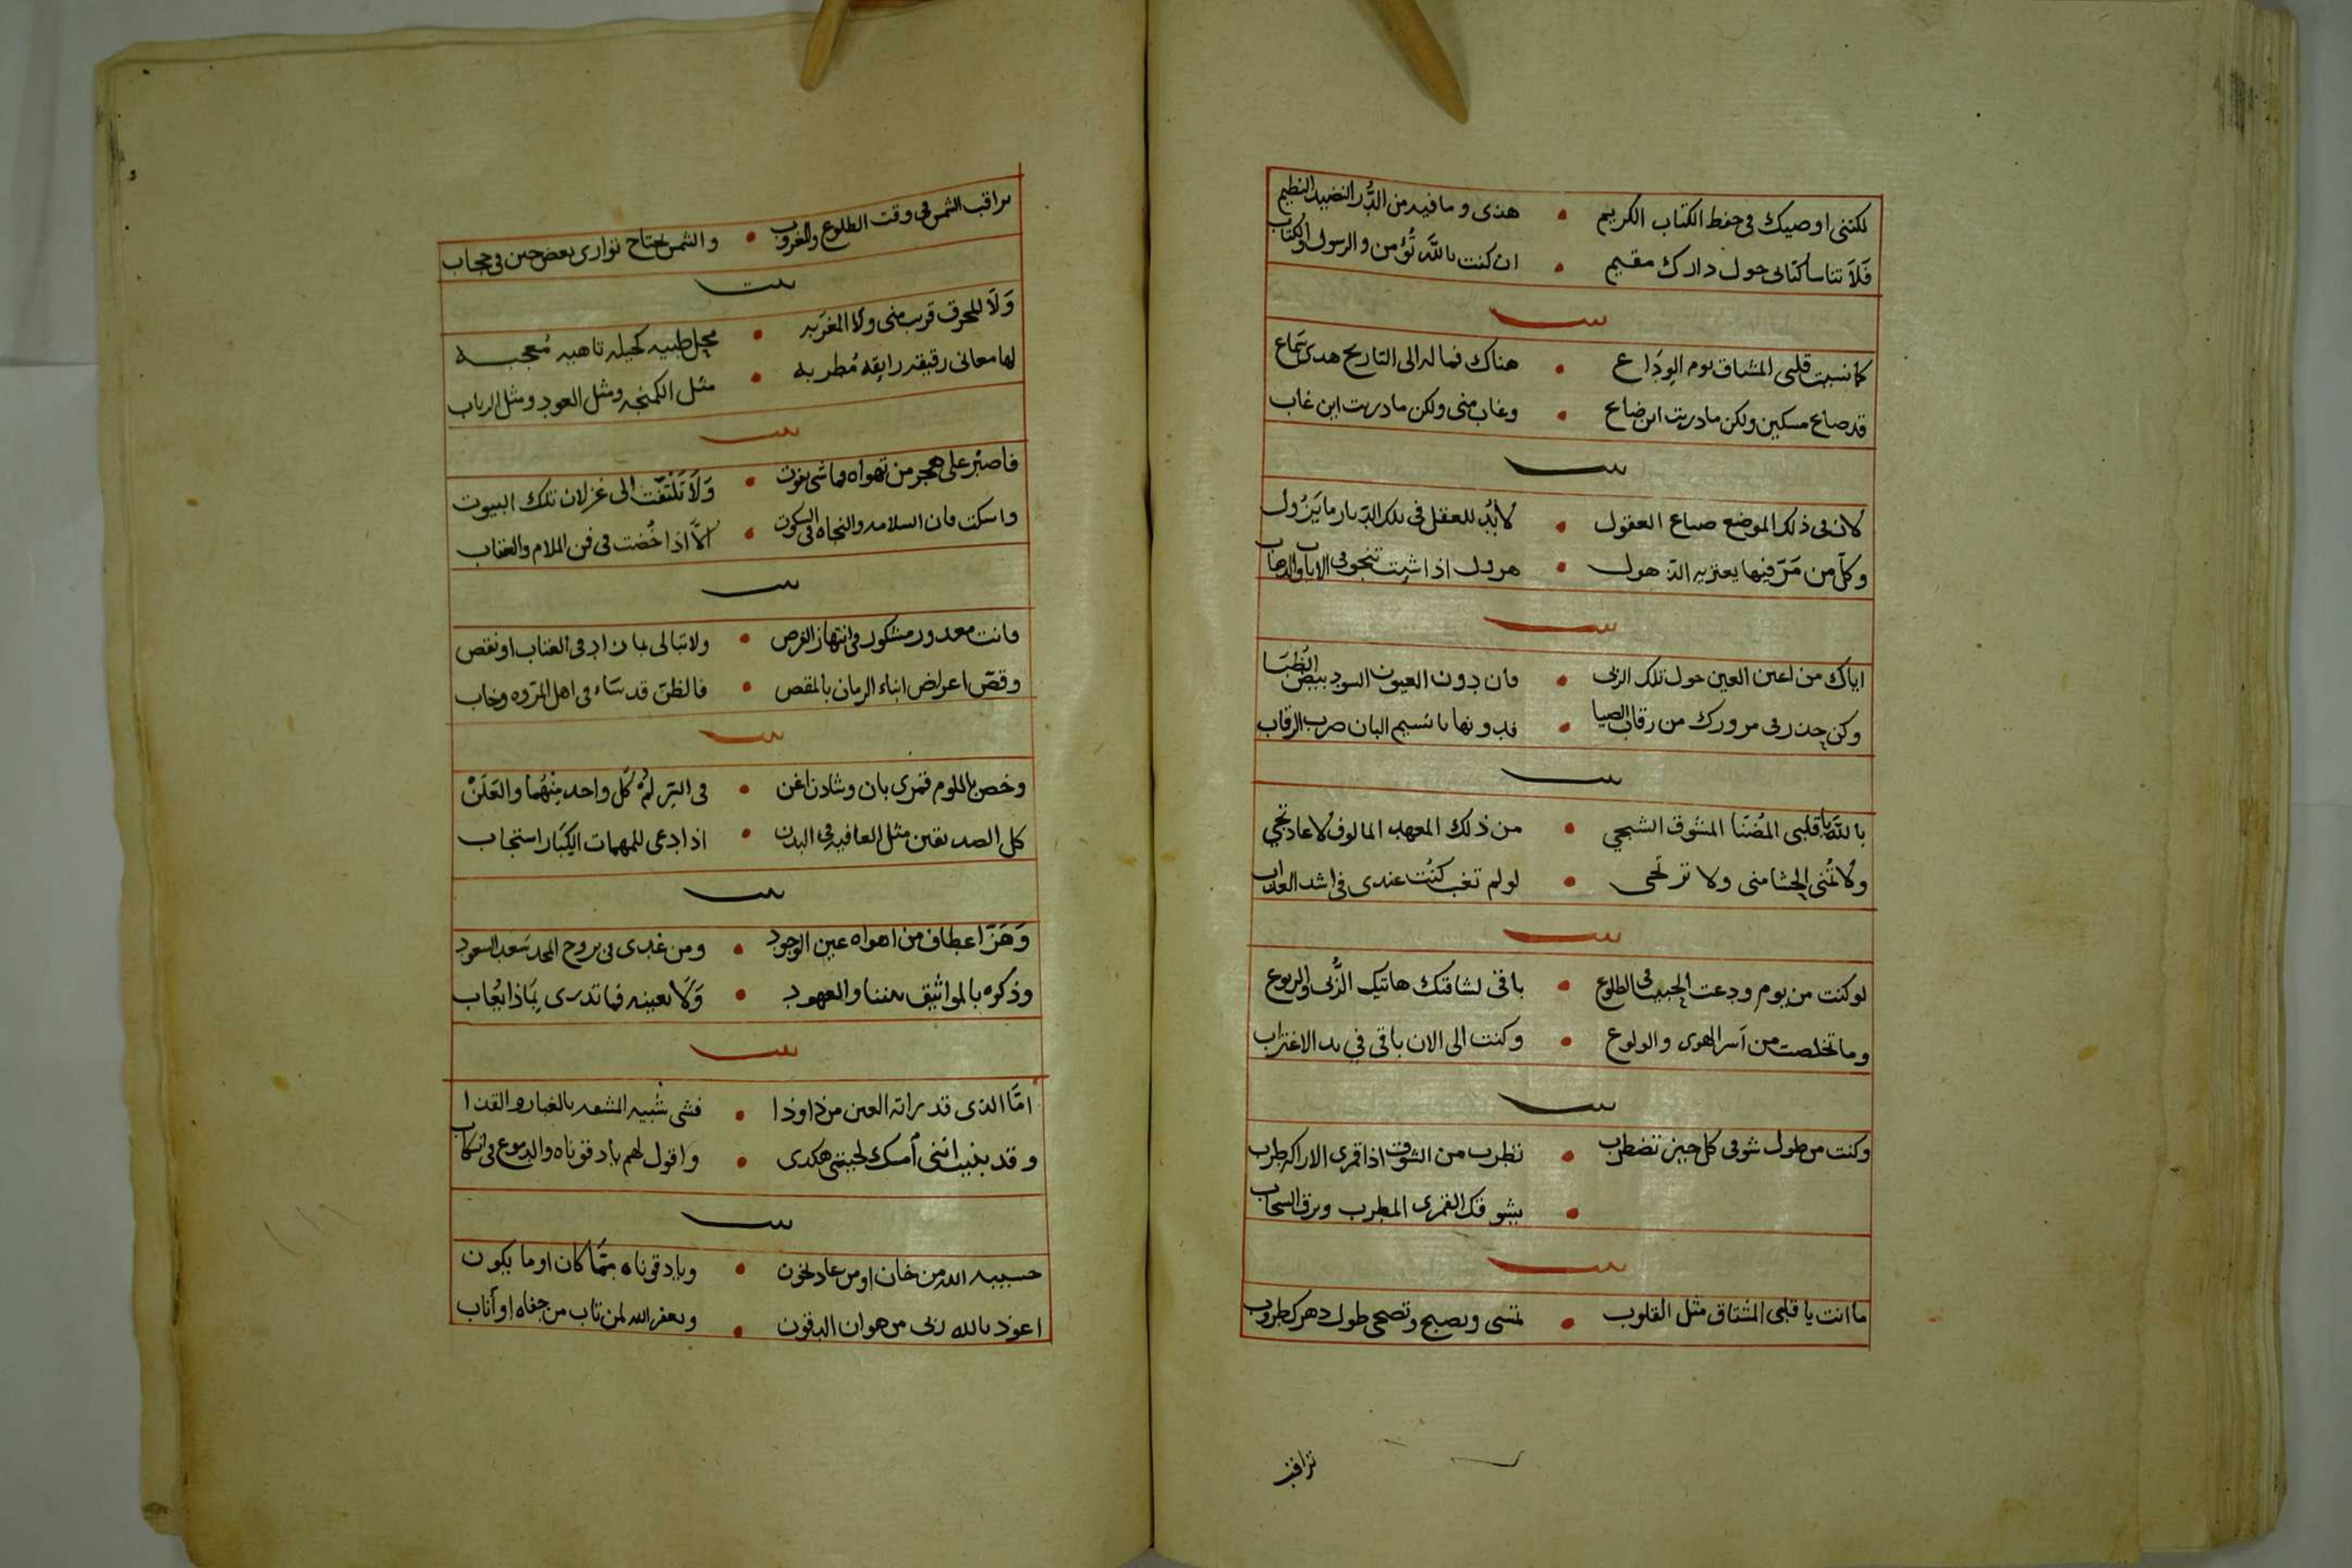 لكنني اوصيك في حفظ الكتاب الكريم • هذى وما فيه من الدُّر النضيد النظيم
فَلاَ تناسا كتابى حول دارك مقيم • ان كنت بالله تُؤمن والرسول والكتاب
بيت
كما نسيت قلبى المشتاق يوم الوِدَاع • هناك فماله الى التاريخ هدى سَماع
قد ضاع مسكين ولكن مادريت اين ضاع • وغاب منى ولكن مادريت اين غاب
بيت
لان في ذلك الموضع ضياع العقول • لابُد للعقل في تلك الديار ما يَزُول
وكلّ من مَرّ فيها يعتريه الذهول • هرول اذا شيت تنجو في الاياب والذهاب
بيت
اياك من اعين العين حول تلك الربى • فان دون العيون السود بيض الظُبَا
وكن حذر في مرورك من رقاب الضبا • فدونها يا نسيم البان ضرب الرقاب
بيت
بالله يا قلبى المُضنَا المشوق الشجي • من ذلك المعهد المالوف لا عاد تجي
ولا تُمنى الحشا منى ولا ترتجى • لو لم تغب كنت عندى في اشد العذاب
بيت
لو كنت من يوم ودعت الحبيب في الطلوع • باقى لشاقتك هاتيك الرُّبى والربوع
وما تخلصت من أسر الهوى والولوع • وكنت الى الان باقى في يد الاغتراب
بيت
وكنت من طول شوقى كل حين تضطرب • تطرب من الشوق اذا قمرى الاراكه طرب
• يشوقك القمرى المطرب وبرق السحاب
بيت
ما انت يا قلبى المشتاق مثل القلوب • تمسى وتصبح وتضحى طول دهرك طروب
تراقب
تراقب الشمس في وقت الطلوع والغروب • والشمس تحتاج توارى بعض حين في حجاب
بيت
وَلاَ للمحرق قرب منى ولا المغربه • محل ظبيه كحيله تاهيه مُعجبه
لها معانى رقيقه رايقه مُطربه • مثل الكمنجه ومثل العود ومثل الرباب
بيت
فاصبْر على هجر من تهواه فما شى يفوت • وَلاَ تَلتفت الى غزلان تلك البيوت
واسكت فان السلامه والنجاه في السكوت • الاّ اذا خُضت في فن الملام والعتاب
بيت
فانت معدور مشكور في انتهاز الفرص • ولا تبالى بمان زاد في العتاب او نقص
وقصّ اعراض ابناء الزمان بالمقص • فالظن قد سَاء في اهل المروه وخاب
بيت
وخص باللوم قمرى بان وشادن اغن • في السِر لمُه كل واحد مِنْهُما والعَلَنْ
كل الصديقين مثل العافيه في البدن • اذا دعى للمهمات الكِبَار استجاب
بيت
وَهَزّ اعطاف من اهواه عين الوجود • ومن غدى في بروج المجد سَعد السعود
وذكره بالمواثيق بيننا والعهود • وَلا تعيبه فما تدرى بِماذا يُعاب
بيت
امَّا الذى قد رأته العين من ذا وذا • فشى شبيه المشعد بالغبار والقذا
وقد بقيت اننى أمسك لحيتى هكذى • واقول لهم يا دقوناه والدموع في انسكاب
بيت
حسيبه الله من خان او من عاد يخون • ويا دقوناه مِمَّا كان او ما يكون
اعوذ بالله ربى من هوان الدقون • ويغفر الله لمن تاب من جفاه او أناب